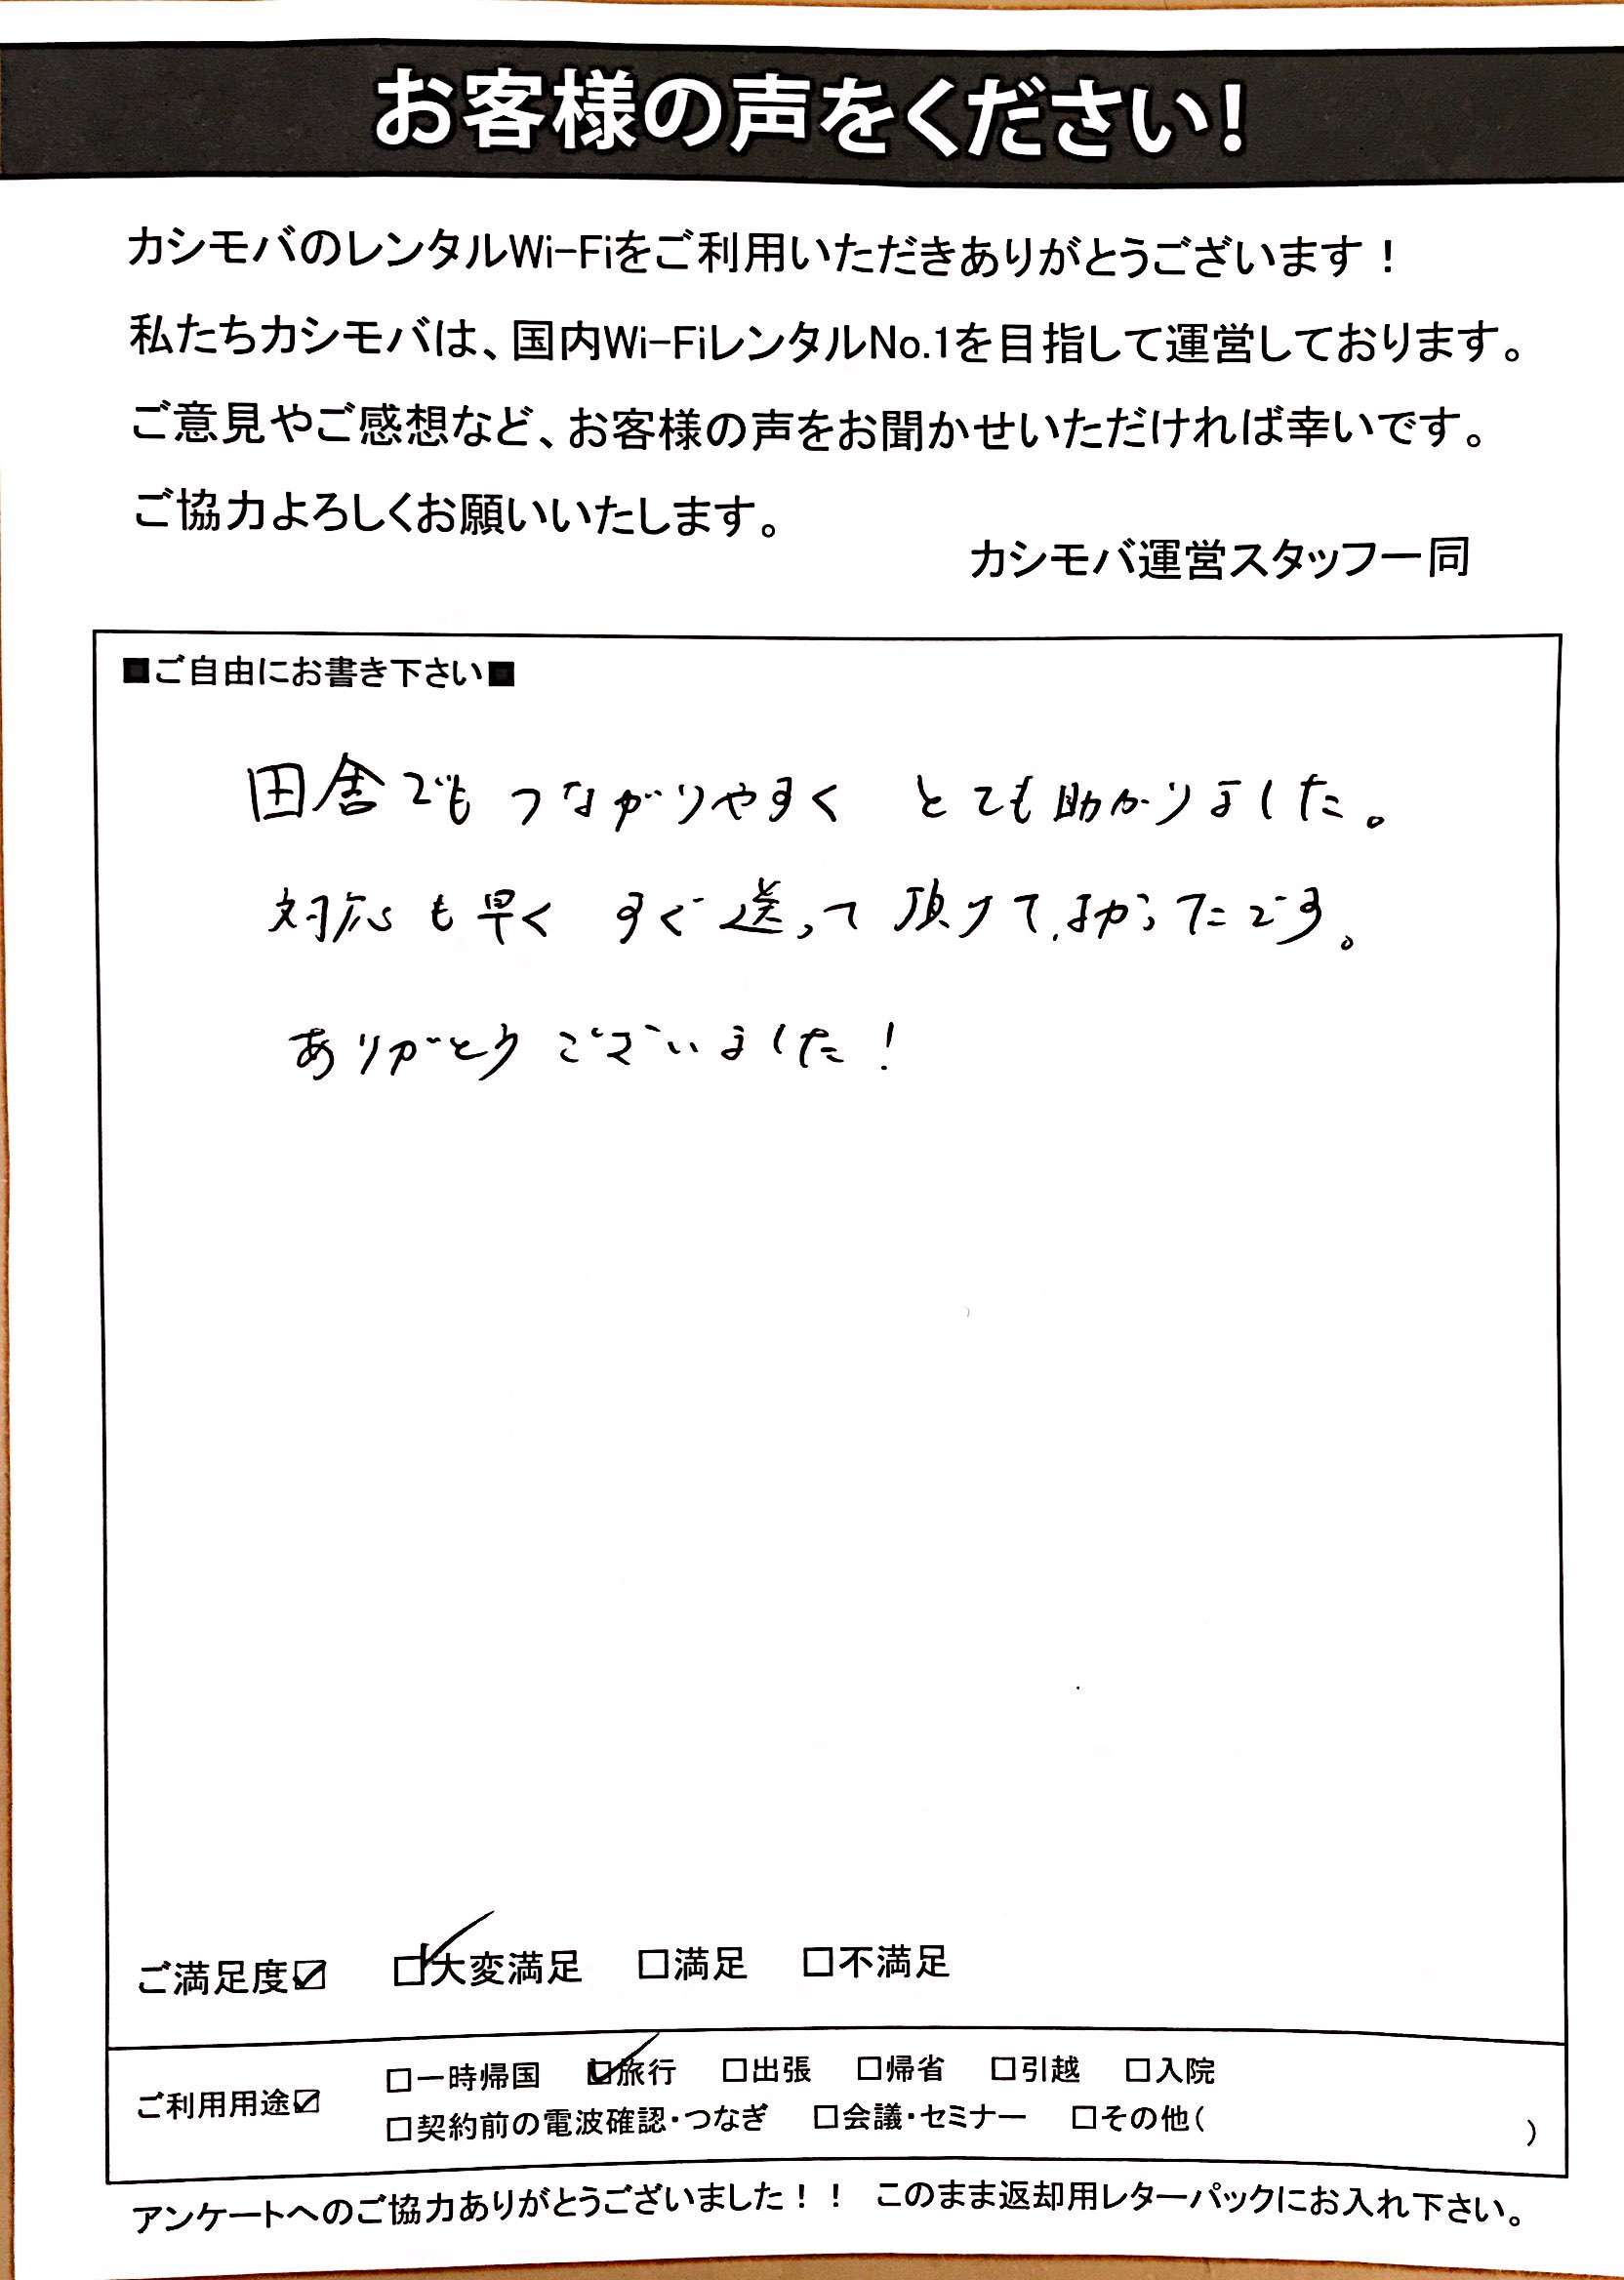 お客様の声をください!
カシモバのレンタルWi-Fiをご利用いただきありがとうございます！
私たちカシモバは、国内Wi-FiレンタルNo.1を目指して運営しております。
ご意見やご感想など、お客様の声をお聞かせいただければ幸いです。
ご協力よろしくお願いいたします。
カシモバ運営スタッフ一同
■ご自由にお書き下さい■
田舎でもつながりやすく とても助かりました。
対応も早く すぐ送って頂けて、よかったです。
ありがとうございました！
ご満足度☑ ☑大変満足 □満足 □不満足
ご利用用途☑ □一時帰国 ☑旅行 □出張 □帰省 □引越 □入院
□契約前の電波確認・つなぎ □会議・セミナー □その他( )
アンケートへのご協力ありがとうございました！！ このまま返却用レターパックにお入れ下さい。